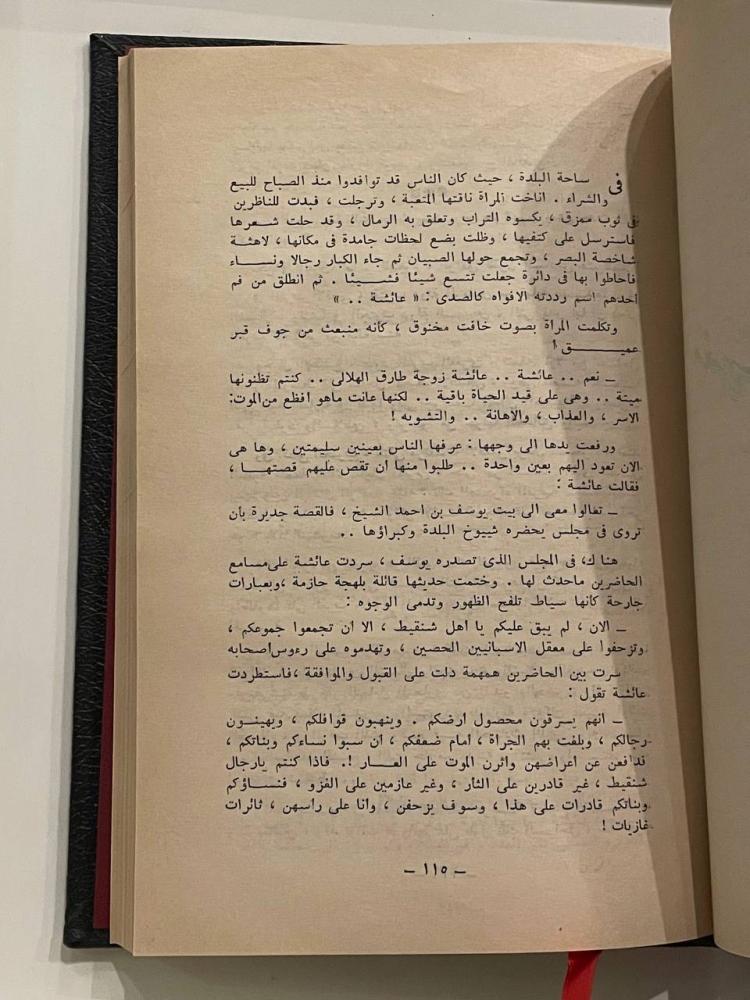 فى ساحة البلدة ، حيث كان الناس قد توافدوا منذ الصباح للبيع
والشراء . اناخت المرأة ناقتها المتعبة ، وترجلت ، فبدت للناظرين
فى ثوب ممزق ، يكسوه التراب وتعلق به الرمال ، وقد حلت شــعرها
فاسترسل على كتفيها ، وظلت بضع لحظات جامدة فى مكانها ، لاهثة
شاخصة البصر ، وتجمع حولها الصبيان ثم جاء الكبار رجالا ونســاء
فأحاطوا بها فى دائرة جعلت تتسع شيئا فشــيئا . ثم انطلق من فم
احدهم اسم رددته الافواه كالصدى : « عائشة .. »
وتكلمت المرأة بصوت خافت مخنوق ، كأنه منبعث من جوف قبر
عميــــــق !
ــ نعم .. عائشة .. عائشة زوجة طارق الهلالى .. كنتم تظنونها
ميتة .. وهى على قيد الحياة باقية .. لكنها عانت ماهو افظع من الموت:
الاسر ، والعذاب ، والاهانة .. والتشويه !
ورفعت يدها الى وجهها : عرفها الناس بعينين سليمتين ، وها هى
الان تعود اليهم بعين واحدة .. طلبوا منها ان تقص عليهم قصتهــا ،
فقالت عائشة :
ــ تعالوا معى الى بيت يوسف بن احمد الشيخ ، فالقصة جديرة بأن
تروى فى مجلس يحضره شيوخ البلدة وكبراؤها ..
هناك، فى المجلس الذى تصدره يوسف ، سردت عائشة على مسامع
الحاضرين ماحدث لها . وختمت حديثها قائلة بلهجة حازمة ،وبعبارات
جارحة كأنها سياط تلفح الظهور وتدمى الوجوه :
ــ الان ، لم يبق عليكم يا اهل شنقيط ، الا ان تجمعوا جموعكم ،
وتزحفوا على معقل الاسبانيين الحصين ، وتهدموه على رءوس اصحابه
سرت بين الحاضرين همهمة دلت على القبول والموافقة ،فاستطردت
عائشة تقول :
ــ انهم يسرقون محصول ارضكم . وينهبون قوافلكم ، ويهينــون
رجالكم ، وبلغت بهم الجرأة ، امام ضعفكم ، ان سبوا نساءكم وبناتكم ،
فدافعن عن اعراضهن واثرن الموت على العــار !. فاذا كنتم يارجال
شنقيط ، غير قادرين على الثأر ، وغير عازمين على الغزو ، فنســاؤكم
وبناتكم قادرات على هذا ، وسوف يزحفن ، وانا على رأسهن ، ثائرات
غازيات !
ــ ١١٥ ــ